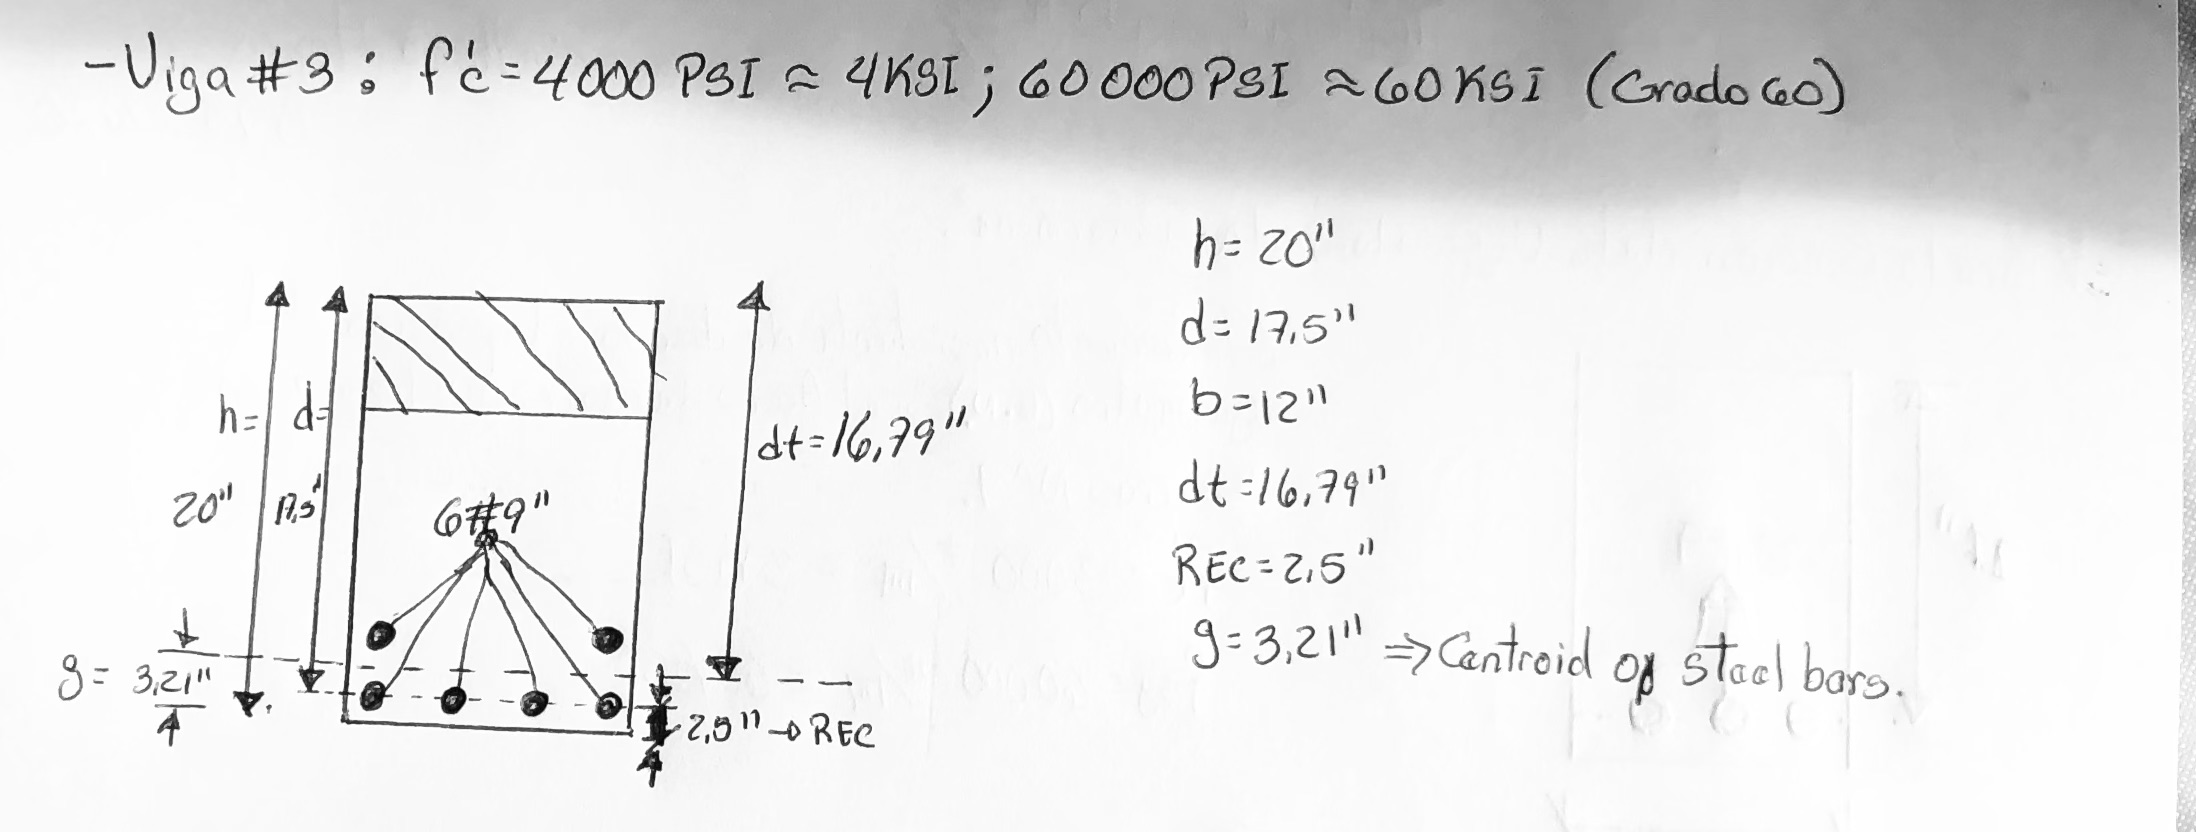 -Viga #3: f'c=4000 PSI ≈ 4KSI; 60000PSI ≈60KSI (Grado 60)
h= 20"
d= 17,5"
b=12"
dt=16,79"
REC=2,5"
g=3,21" ⇒ Centroid of steel bars.
h=
d=
20"
17,5"
dt=16,79"
6#9"
g= 3,21"
2,5" → REC